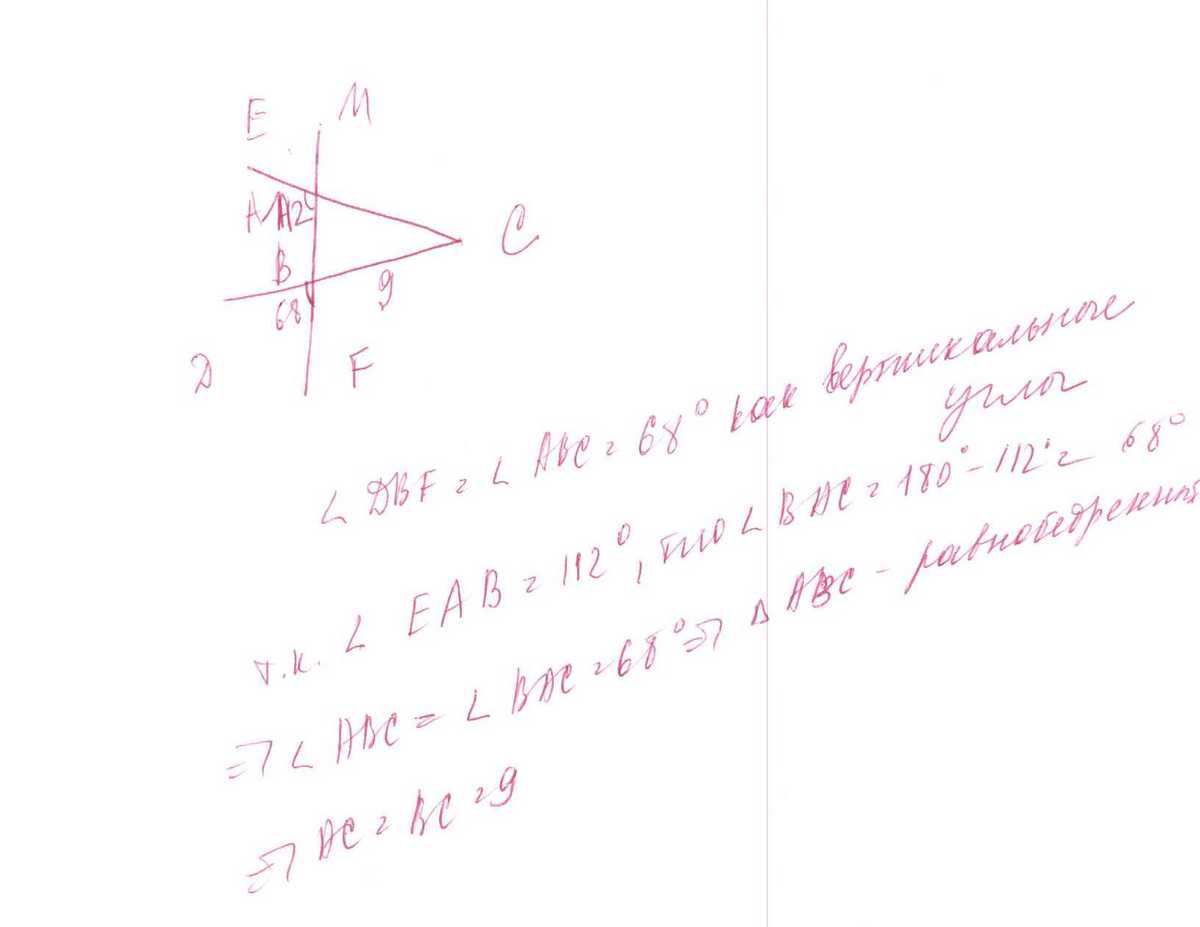 E M
A 112
B
C
9
68
D F
∠ DBF = ∠ ABC = 68° как вертикальные
углы
т.к. ∠ EAB = 112°, то ∠ BAC = 180° - 112° = 68°
=> ∠ ABC = ∠ BAC = 68° => Δ ABC - равнобедренный
=> AC = BC = 9